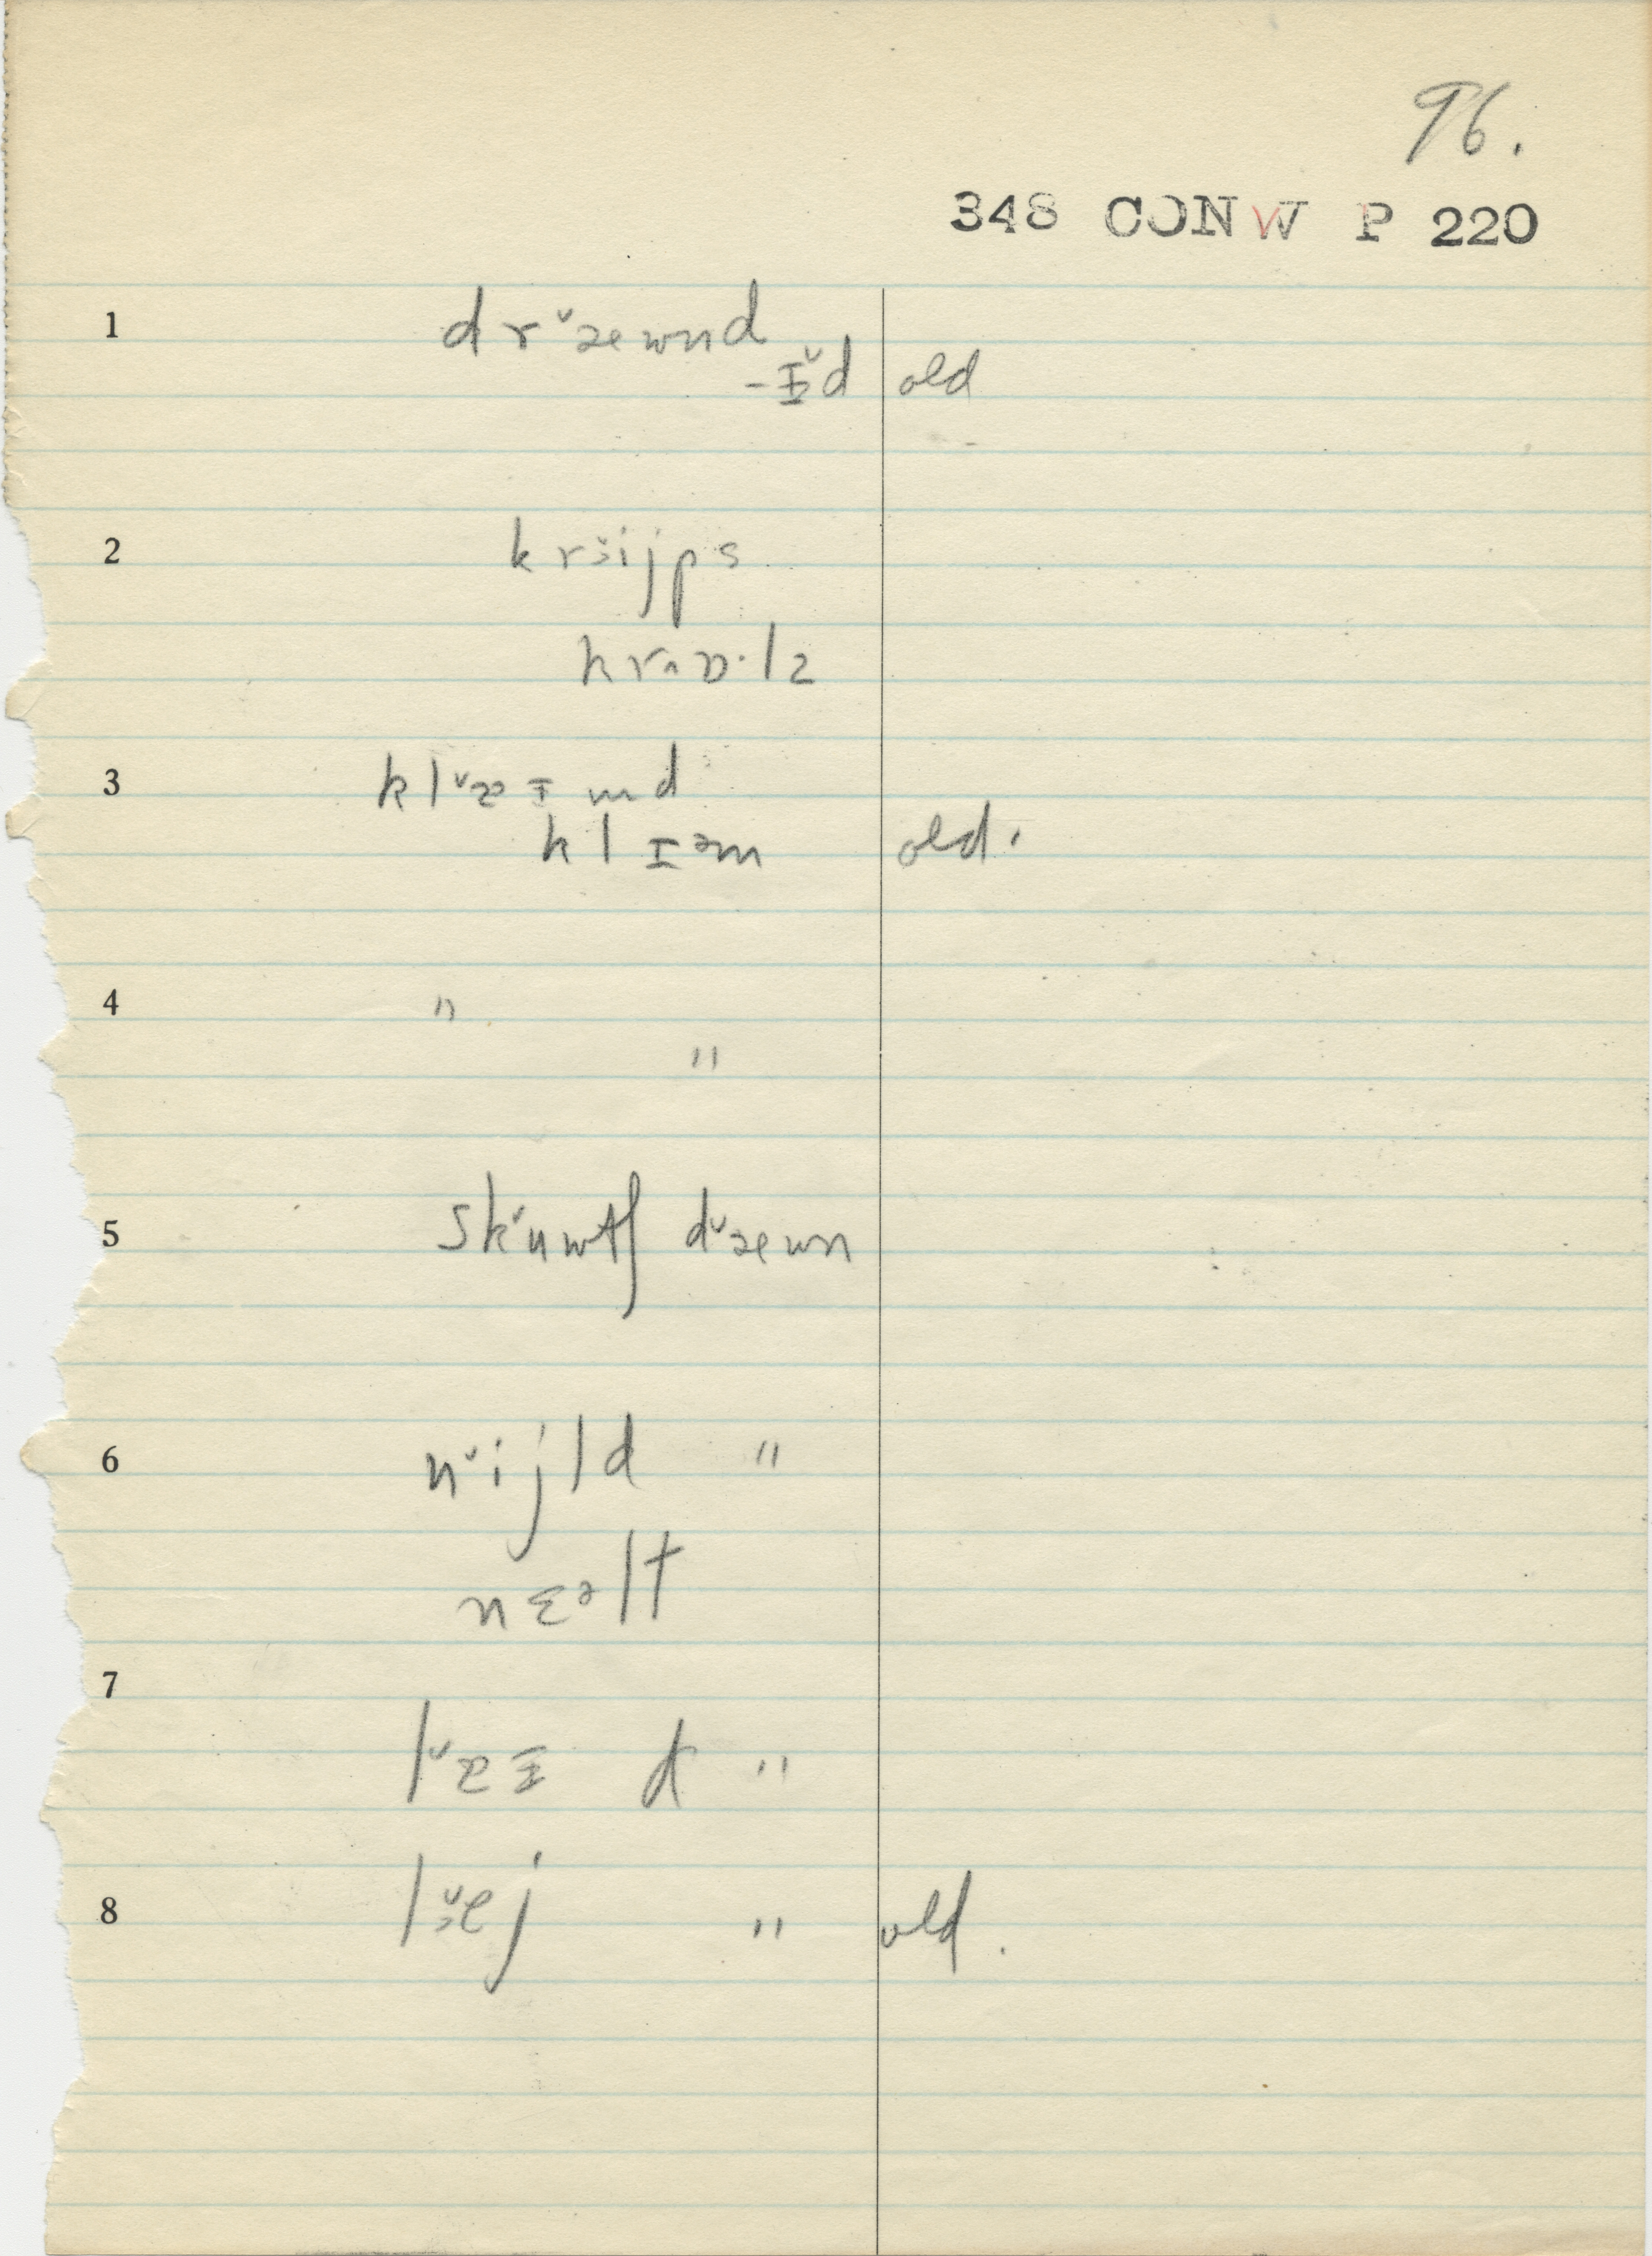 96.
348 CONW P 220
1 drˇæwnd
-ɪˇd old
2 krɜˇijps
krʌɒ·lz
3 klˇæɪmd
klɪəm old.
4 "
"
5 skˇuwtʃ dˇæwn
6 nˇijld "
nɛəlt
7
lˇæɪd "
8 lɜˇej " old.